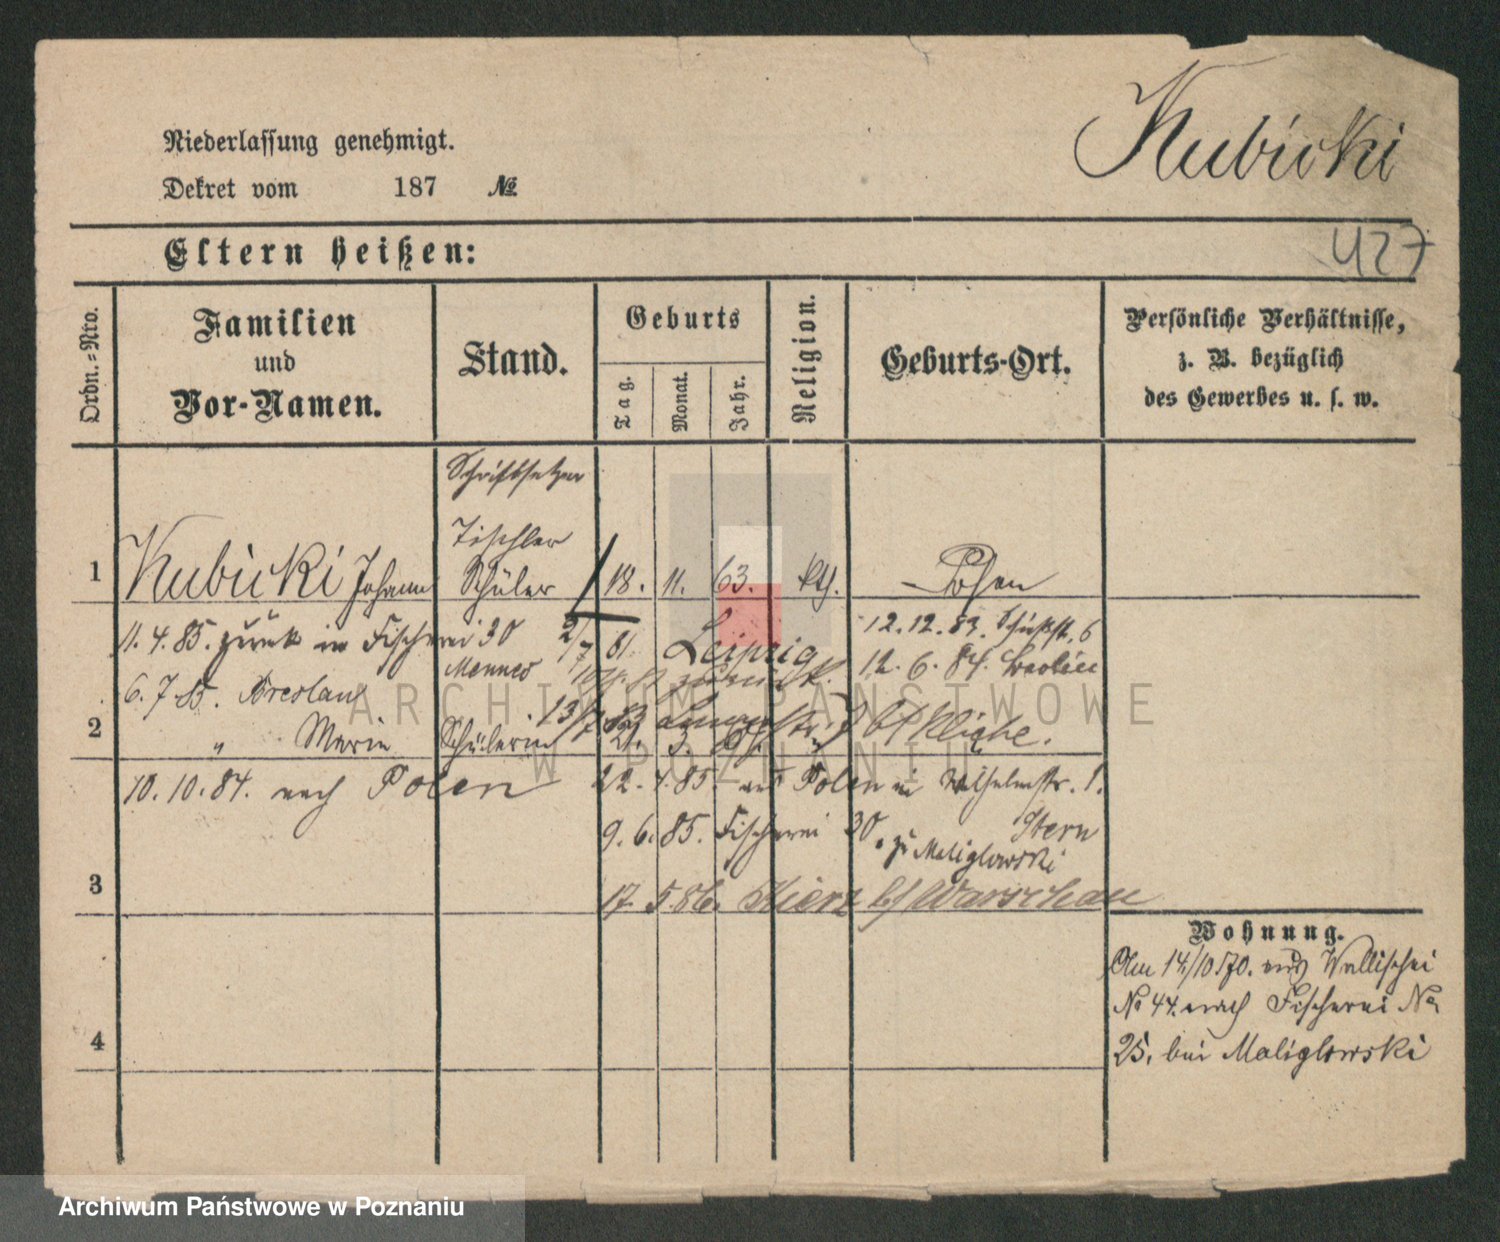 Kubicki
Niederlassung genehmigt.
Dekret vom 187 №
Eltern heißen:
427
Ordn.=Nro.
Familien
und
Vor-Namen.
Stand.
Geburts
Tag.
Monat.
Jahr.
Religion.
Geburts-Ort.
Persönliche Verhältnisse,
z. B. bezüglich
des Gewerbes u. s. w.
Schriftsetzer
Tischler
1 Kubicki Johann Schüler 18. 11. 63. kth. Posen
11. 4. 85. zurück in Fischerei 30
2/7 81 Leipzig
12. 12. 83. 6
12. 6. 84.
6. 7 85. Breslau
zurück.
13/7
2 " Marie Schülerin 21. 3.
10. 10. 84. nach Polen
22. 4. 85. aus Polen in Wilhelmstr. 1.
Stern
9. 6. 85. Fischerei 30. zu Maliglowski
3
17 5 86. Kierz b/ Warschau
Wohnung.
Am 14/10.70. aus Wallischei
No 44. nach Fischerei No
25. bei Maliglowski
4
ARCHIWUM PAŃSTWOWE
W POZNANIU
Archiwum Państwowe w Poznaniu